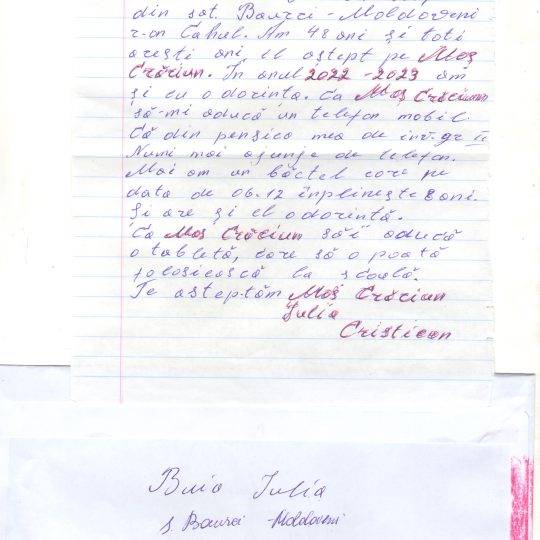 din sat. Baurci-Moldoveni
r-on Cahul. Am 48 ani și toti
acești ani, îl aștept pe Moș
Crăciun. În anul 2022-2023 am
și eu o dorința. Ca Moș Crăciunn
să-mi aducă un telefon mobil.
Că din pensiea mea de inv. gr II
Numi mai ajunje de telefon.
Mai am un băețel care pe
data de 06.12 înplinește 8 ani.
Și are și el o dorintă.
Ca Moș Crăciun săii aducă
o tabletă, care să o poată
folosicească la scoală.
Te asteptăm Moș Crăciun
Iulia
Cristican
Buia Iulia
s. Baurci-Moldoveni